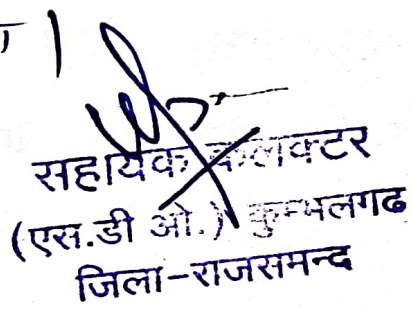 सहायक कलक्टर
(एस.डी ओ.) कुम्भलगढ
जिला-राजसमन्द